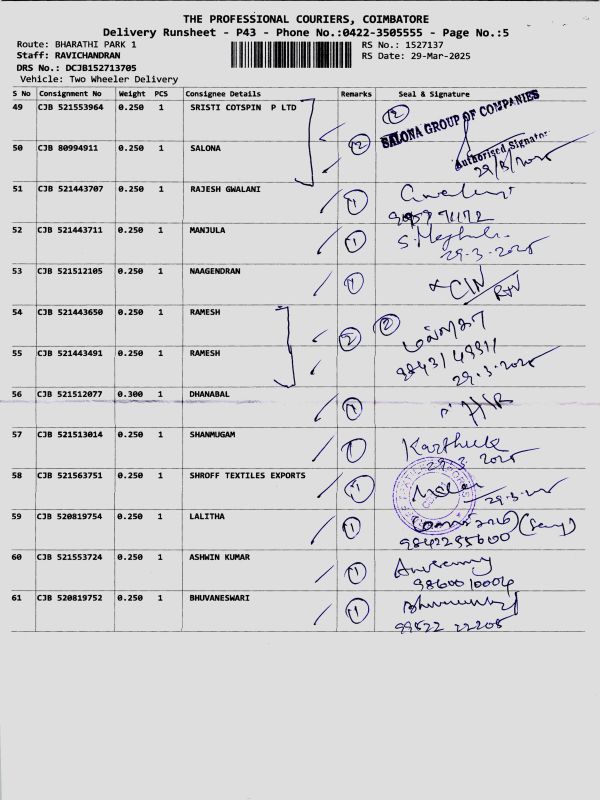 THE PROFESSIONAL COURIERS, COIMBATORE
Delivery Runsheet - P43 - Phone No.:0422-3505555 - Page No.:5
Route: BHARATHI PARK 1
RS No.: 1527137
Staff: RAVICHANDRAN
RS Date: 29-Mar-2025
DRS No.: DCJB152713705
Vehicle: Two Wheeler Delivery
S No Consignment No Weight PCS Consignee Details Remarks Seal & Signature
49 CJB 521553964 0.250 1 SRISTI COTSPIN P LTD 2
SALONA GROUP OF COMPANIES
50 CJB 80994911 0.250 1 SALONA 2
Authorised Signator
29/3/2025
51 CJB 521443707 0.250 1 RAJESH GWALANI 1
52 CJB 521443711 0.250 1 MANJULA 1
29-3-2025
53 CJB 521512105 0.250 1 NAAGENDRAN 1
54 CJB 521443650 0.250 1 RAMESH 2 2
55 CJB 521443491 0.250 1 RAMESH
29-3-2025
56 CJB 521512077 0.300 1 DHANABAL 1
57 CJB 521513014 0.250 1 SHANMUGAM 1 Karthick
29-3 2025
58 CJB 521563751 0.250 1 SHROFF TEXTILES EXPORTS 1
29-3-2025
59 CJB 520819754 0.250 1 LALITHA 1
9842255600
60 CJB 521553724 0.250 1 ASHWIN KUMAR 1
9860010004
61 CJB 520819752 0.250 1 BHUVANESWARI 1
99522 22205